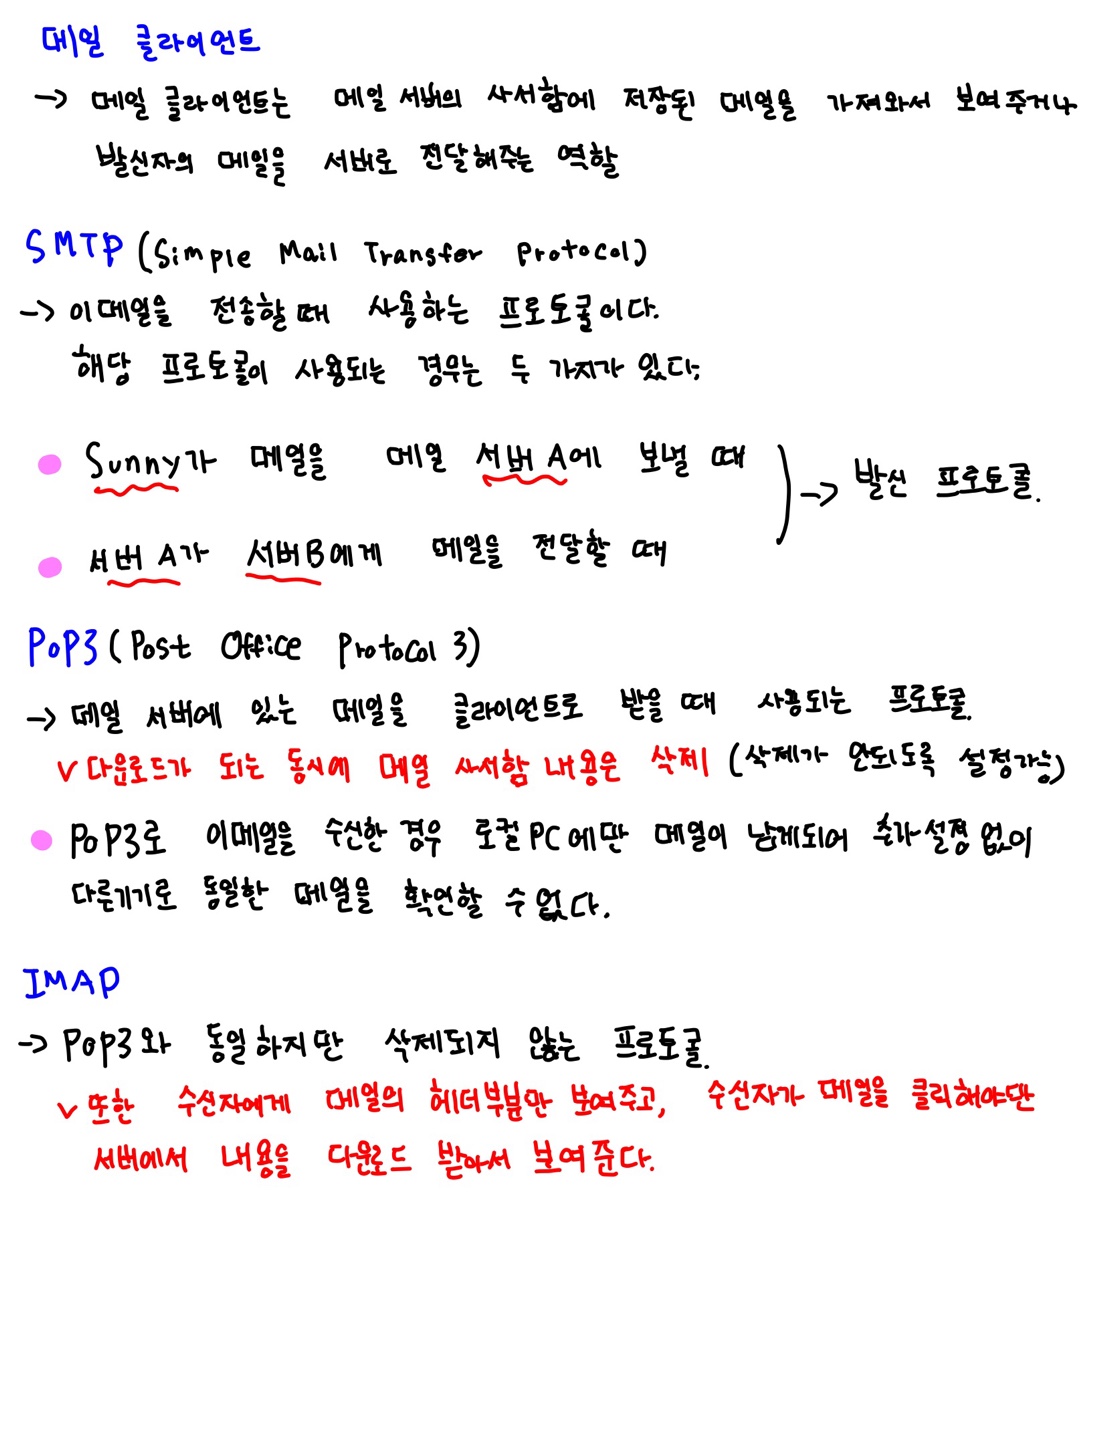 메일 클라이언트
→ 메일 클라이언트는 메일 서버의 사서함에 저장된 메일을 가져와서 보여주거나
발신자의 메일을 서버로 전달해주는 역할
SMTP (Simple Mail Transfer Protocol)
→ 이메일을 전송할 때 사용하는 프로토콜이다.
해당 프로토콜이 사용되는 경우는 두 가지가 있다.
● Sunny가 메일을 메일 서버 A에 보낼 때
→ 발신 프로토콜.
● 서버 A가 서버B에게 메일을 전달할 때
POP3 (Post Office Protocol 3)
→ 메일 서버에 있는 메일을 클라이언트로 받을 때 사용되는 프로토콜.
v 다운로드가 되는 동시에 메일 사서함 내용은 삭제 (삭제가 안되도록 설정가능)
● POP3로 이메일을 수신한 경우 로컬 PC에만 메일이 남게되어 추가설정 없이
다른기기로 동일한 메일을 확인할 수 없다.
IMAP
→ Pop3와 동일하지만 삭제되지 않는 프로토콜.
v 또한 수신자에게 메일의 헤더부분만 보여주고, 수신자가 메일을 클릭해야만
서버에서 내용을 다운로드 받아서 보여준다.